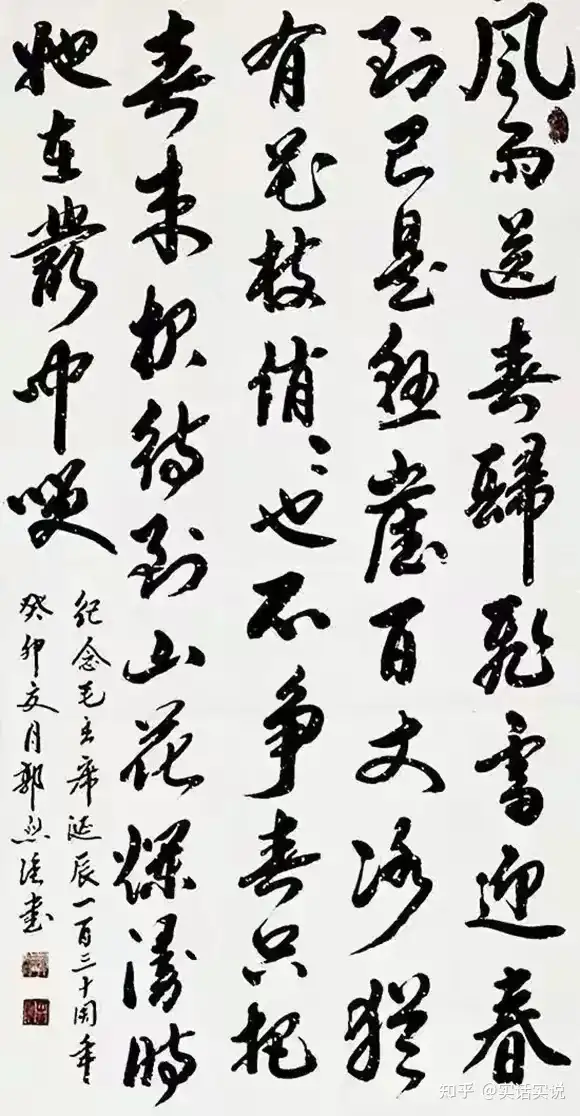 风雨送春歸飛雪迎春
到已是懸崖百丈冰猶
有花枝俏〻也不争春只把
春来报待到山花爛漫時
她在叢中咲
纪念毛主席诞辰一百三十周年
癸卯亥月郭书
知乎 @实话实说